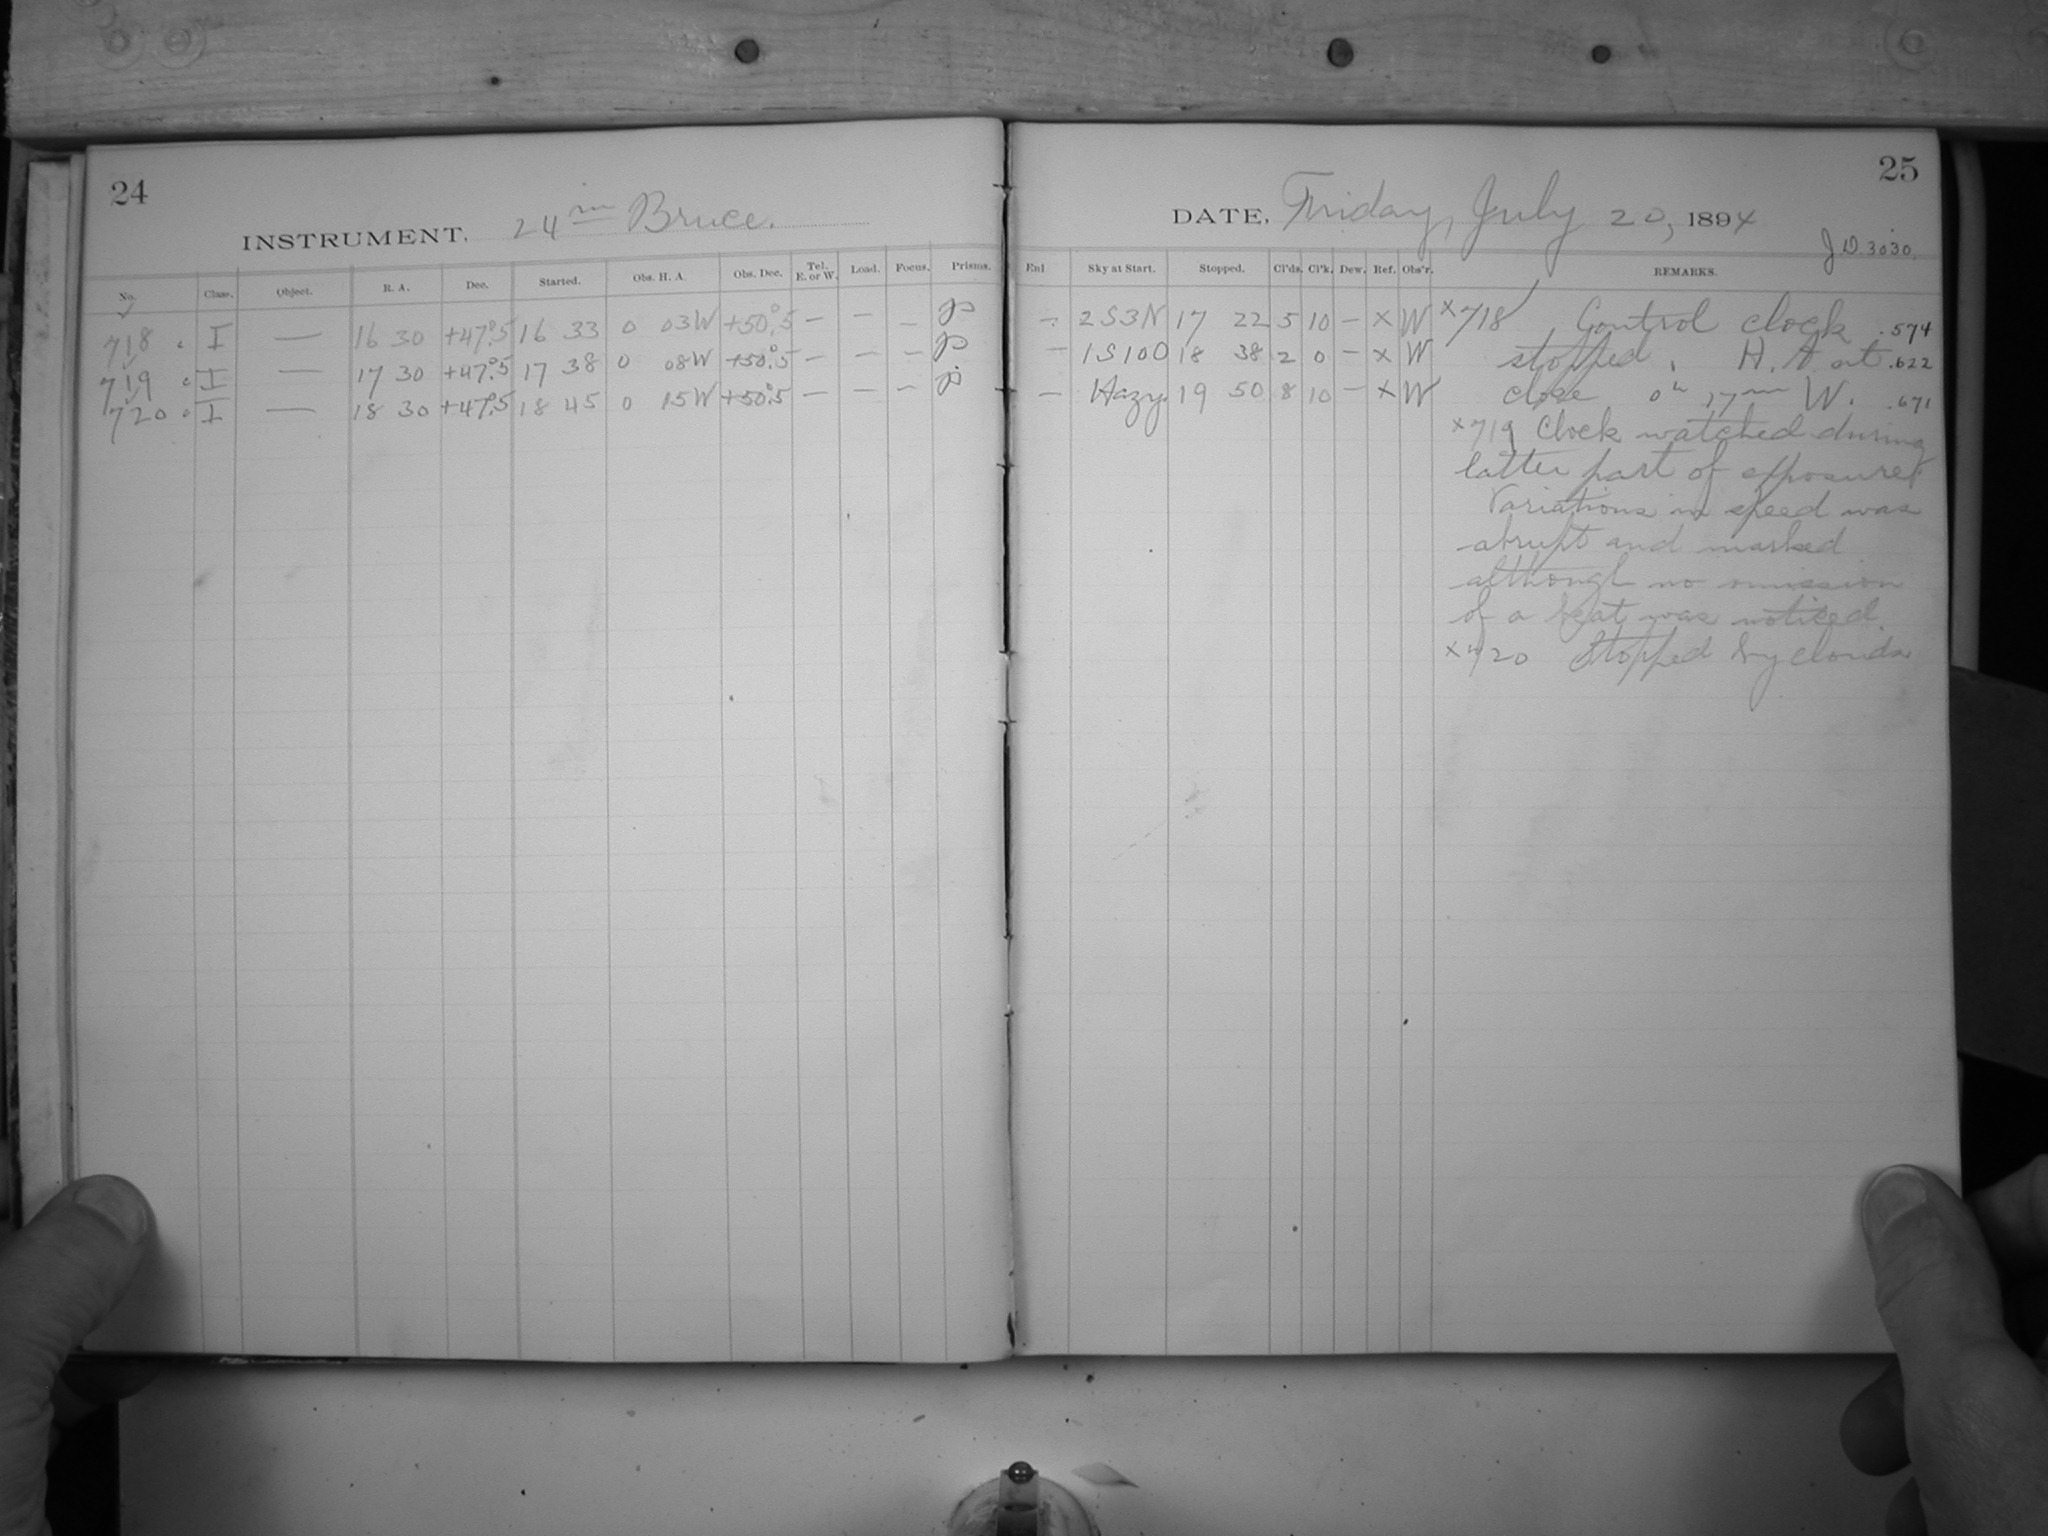 24
INSTRUMENT. 24 in Bruce.
No. Class. Object. R. A. Dec. Started. Obs. H. A. Obs. Dec. Tel. E. or W. Load. Focus. Prisms.
718 I — 16 30 +47°.5 16 33 0 03W +50°.5 — — —
719 I — 17 30 +47°.5 17 38 0 08W +50°.5 — — —
720 I — 18 30 +47°.5 18 45 0 15W +50°.5 — — —
25
DATE. Friday, July 20, 1894
J D 3030
Enl Sky at Start. Stopped. Cl'ds. Cl'k. Dew. Ref. Obs'r. REMARKS.
— 2S3N 17 22 5 10 — x W x718 Control clock .574
— 1S10O 18 38 2 0 — x W stopped. H. A at .622
— Hazy. 19 50 8 10 — x W close 0h 17m W. .671
x719 Clock watched during
latter part of exposure.
Variations in speed was
abrupt and marked
although no omission
of a beat was noticed.
x720 Stopped by clouds